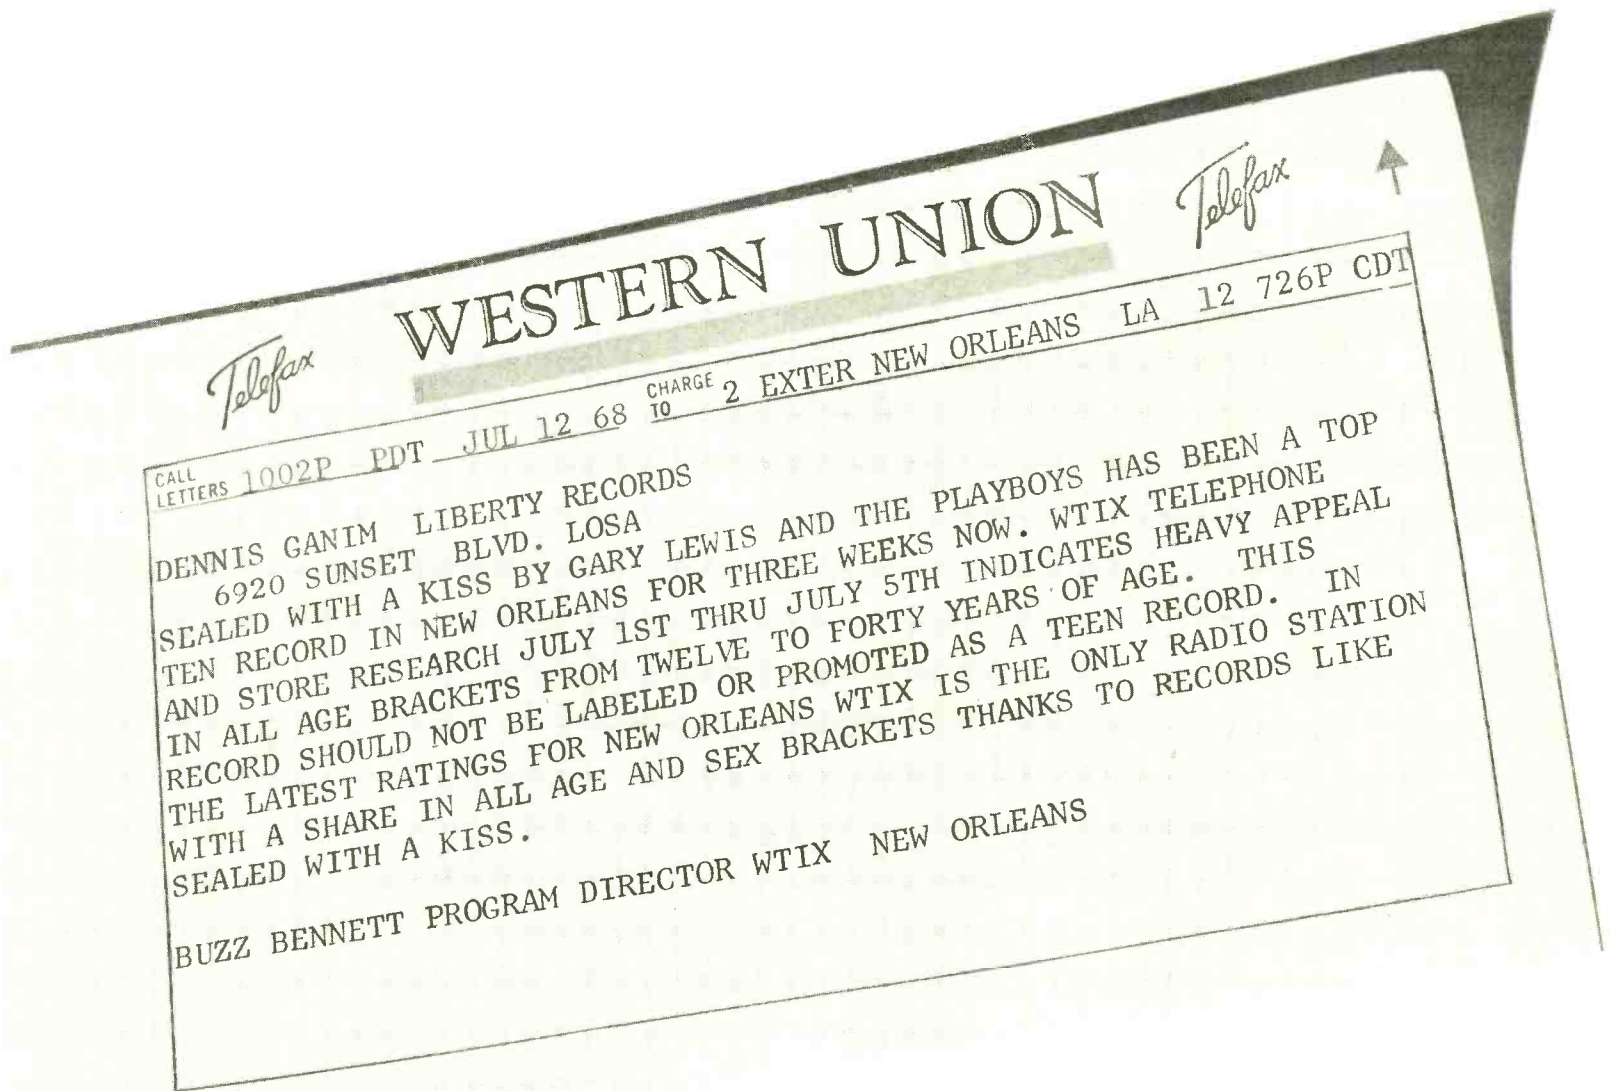 WESTERN UNION
Telefax
Telefax
CALL LETTERS 1002P PDT JUL 12 68 CHARGE TO 2 EXTER NEW ORLEANS LA 12 726P CDT
DENNIS GANIM LIBERTY RECORDS
6920 SUNSET BLVD. LOSA
SEALED WITH A KISS BY GARY LEWIS AND THE PLAYBOYS HAS BEEN A TOP
TEN RECORD IN NEW ORLEANS FOR THREE WEEKS NOW. WTIX TELEPHONE
AND STORE RESEARCH JULY 1ST THRU JULY 5TH INDICATES HEAVY APPEAL
IN ALL AGE BRACKETS FROM TWELVE TO FORTY YEARS OF AGE. THIS
RECORD SHOULD NOT BE LABELED OR PROMOTED AS A TEEN RECORD. IN
THE LATEST RATINGS FOR NEW ORLEANS WTIX IS THE ONLY RADIO STATION
WITH A SHARE IN ALL AGE AND SEX BRACKETS THANKS TO RECORDS LIKE
SEALED WITH A KISS.
BUZZ BENNETT PROGRAM DIRECTOR WTIX NEW ORLEANS